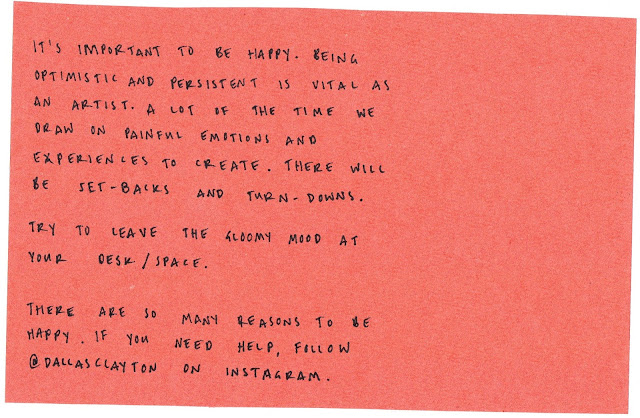 IT'S IMPORTANT TO BE HAPPY. BEING
OPTIMISTIC AND PERSISTENT IS VITAL AS
AN ARTIST. A LOT OF THE TIME WE
DRAW ON PAINFUL EMOTIONS AND
EXPERIENCES TO CREATE. THERE WILL
BE SET-BACKS AND TURN-DOWNS.
TRY TO LEAVE THE GLOOMY MOOD AT
YOUR DESK/SPACE.
THERE ARE SO MANY REASONS TO BE
HAPPY. IF YOU NEED HELP, FOLLOW
@DALLASCLAYTON ON INSTAGRAM.